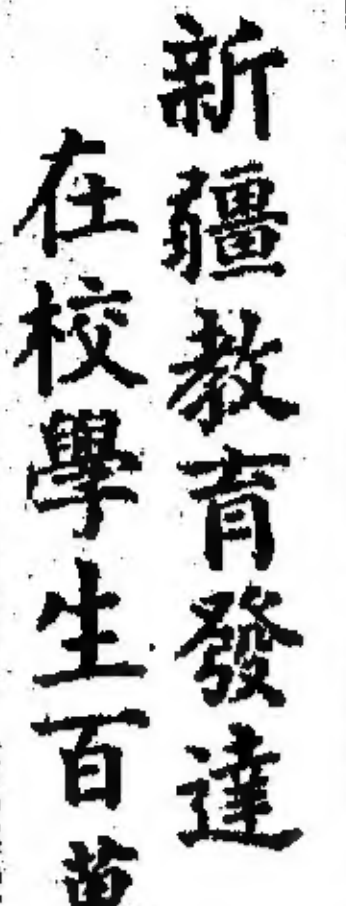 新疆教育發達
在校學生百萬